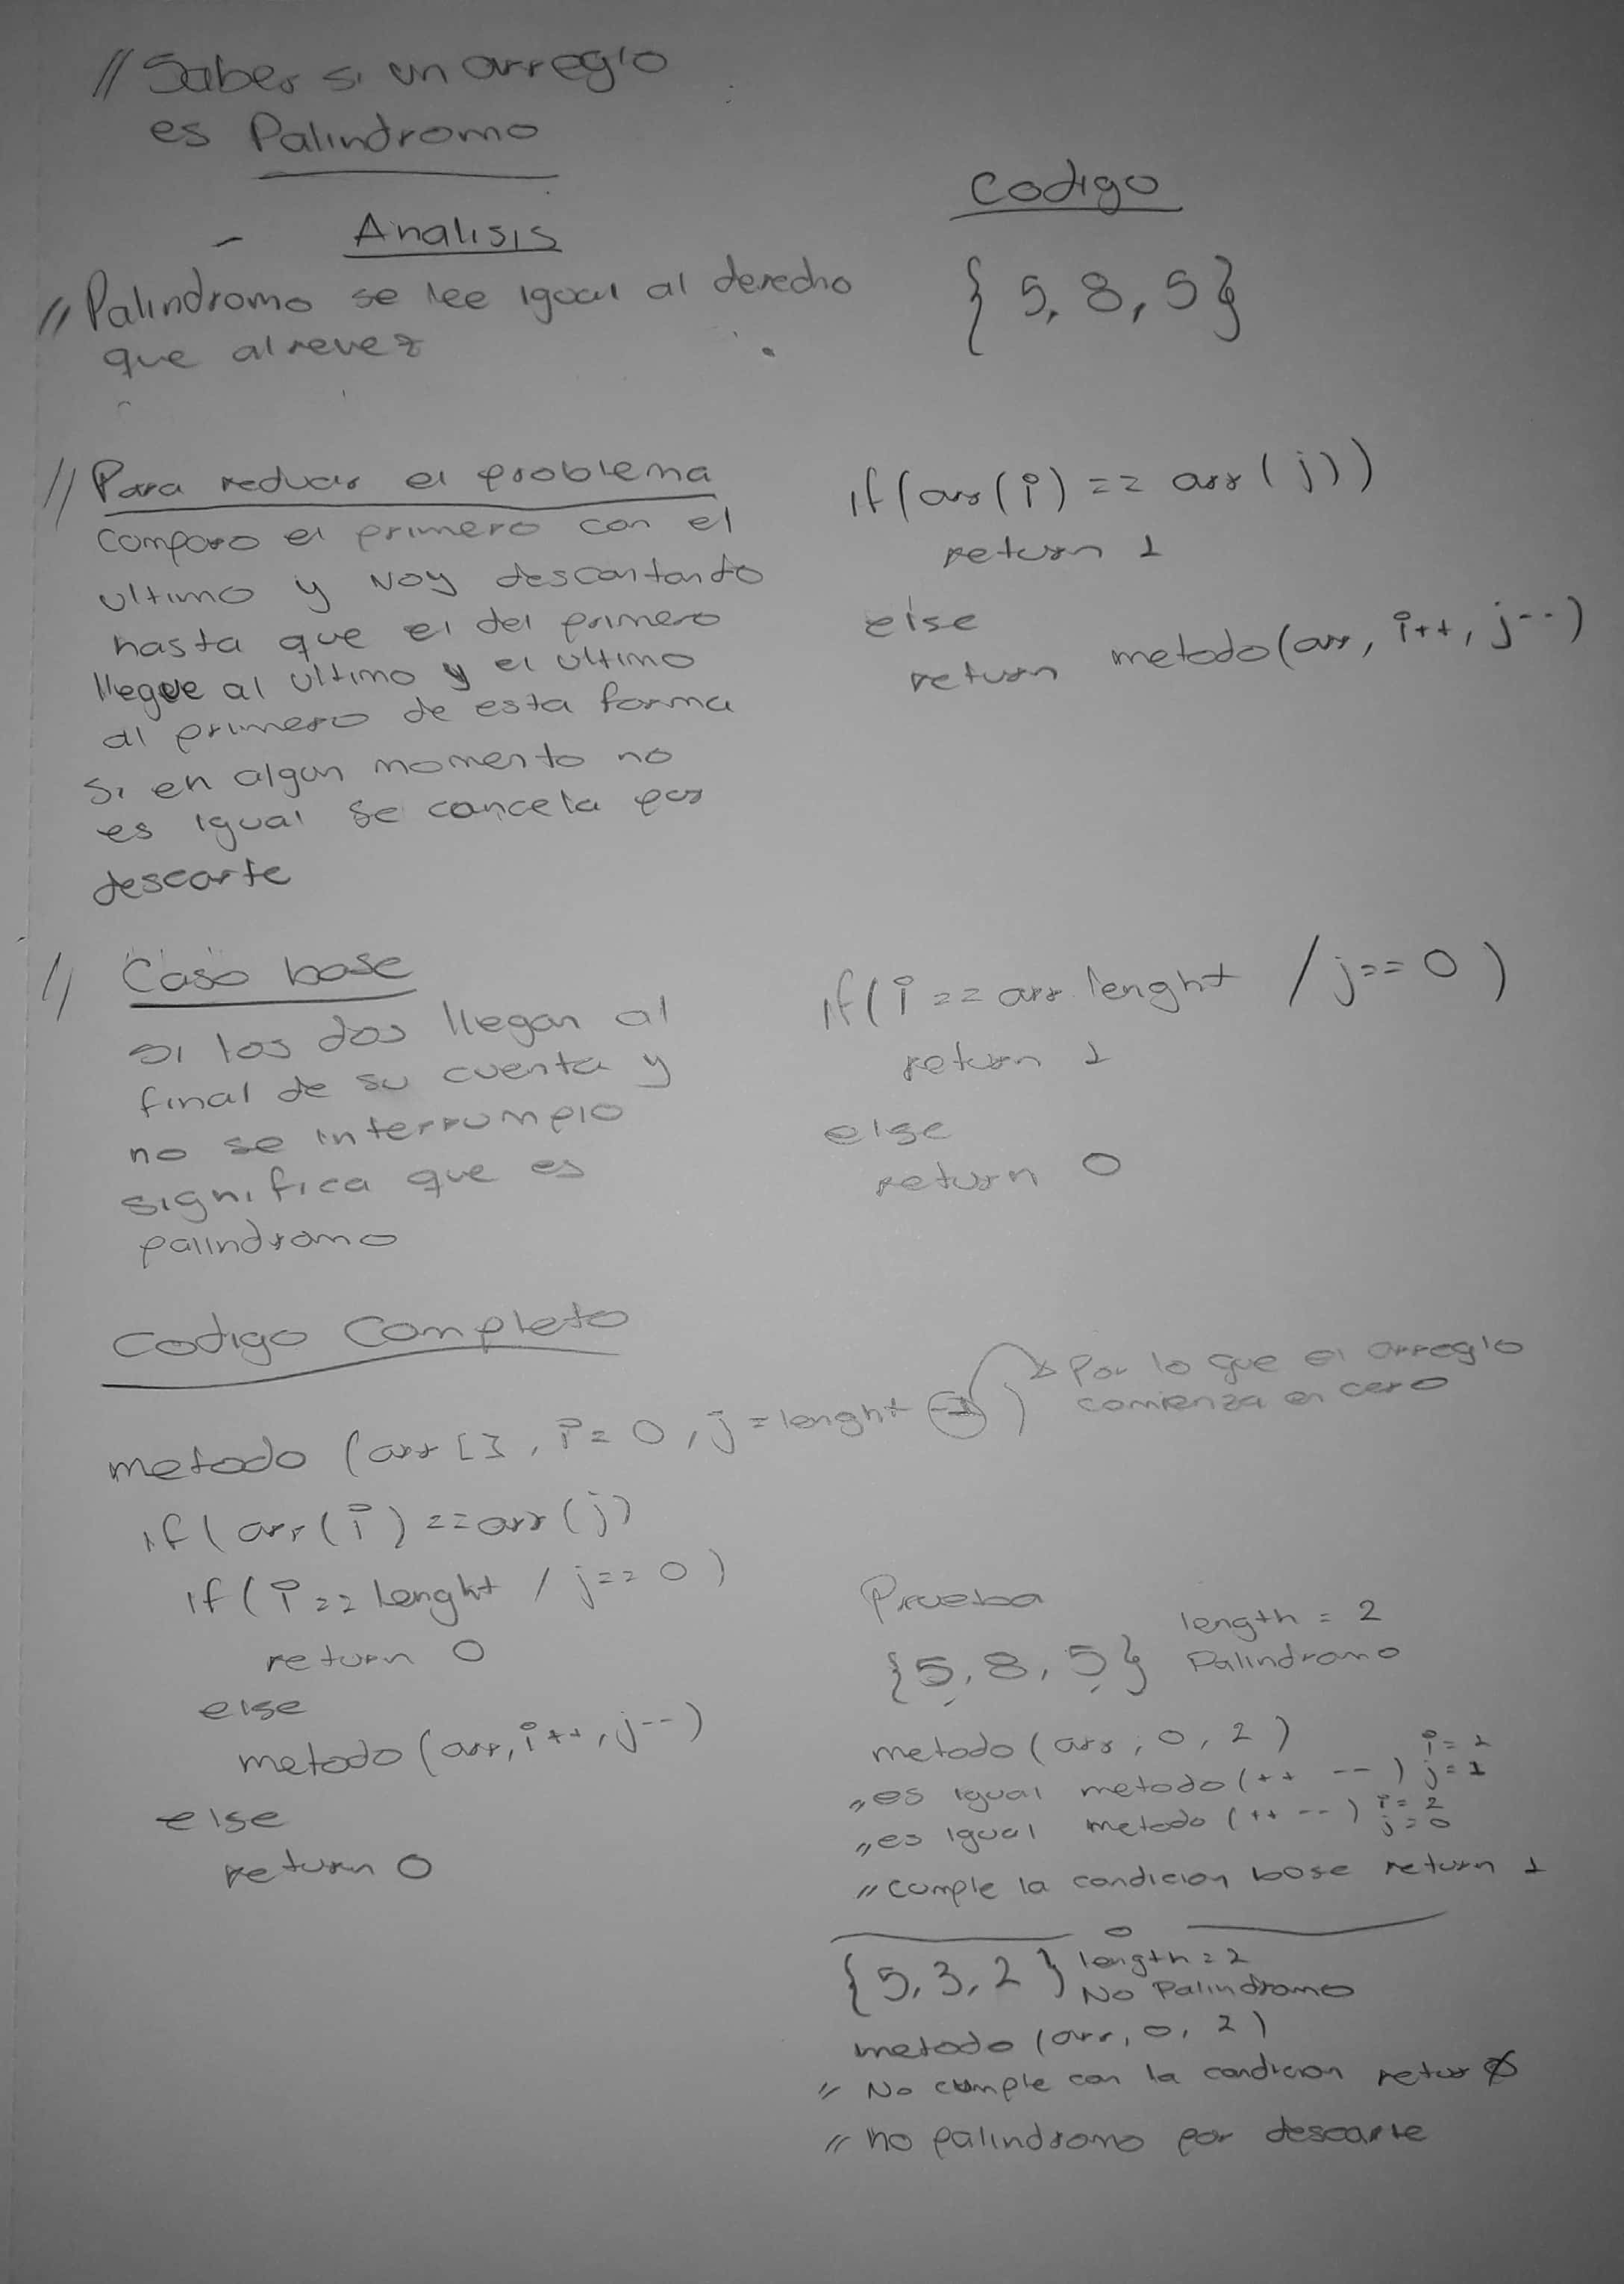 // Saber si un arreglo
es Palindromo
Analisis
// Palindromo se lee igual al derecho
que al revez
// Para reducir el problema
comparo el primero con el
ultimo y voy descartando
hasta que el del primero
llegue al ultimo y el ultimo
al primero de esta forma
si en algun momento no
es igual se cancela por
descarte
// Caso base
si los dos llegan al
final de su cuenta y
no se interrumpio
significa que es
palindromo
Codigo
{ 5, 8, 5}
if(arr(i) == arr(j))
return 1
else
return metodo(arr, i++, j--)
if(i == arr lenght / j== 0)
return 1
else
return 0
Codigo Completo
metodo (arr[], i= 0, j=lenght -1)
Por lo que el arreglo
comienza en cero
if(arr(i) ==arr(j)
if(i == lenght / j==0)
return 0
else
metodo(arr, i++, j--)
else
return 0
Prueba
{5, 8, 5} length = 2
Palindromo
metodo(arr, 0, 2)
// es igual metodo(++ --) i= 1 j= 1
// es igual metodo(++ --) i= 2 j=0
// cumple la condicion base return 1
{5, 3, 2} length=2
No Palindromo
metodo (arr, 0, 2)
// No cumple con la condicion retur 0
// no palindromo por descarte